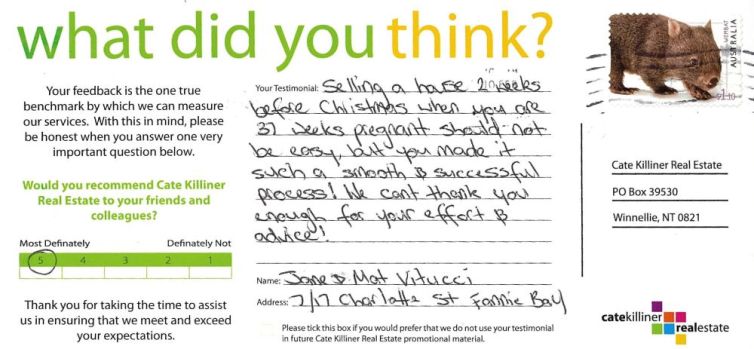 what did you think?
Your feedback is the one true
benchmark by which we can measure
our services. With this in mind, please
be honest when you answer one very
important question below.
Would you recommend Cate Killiner
Real Estate to your friends and
colleagues?
Most Definately Definately Not
5 4 3 2 1
Thank you for taking the time to assist
us in ensuring that we meet and exceed
your expectations.
Your Testimonial: Selling a house 2 weeks
before Christmas when you are
37 weeks pregnant should not
be easy, but you made it
such a smooth & successful
process! We cant thank you
enough for your effort &
advice!
Name: Jane & Mat Vitucci
Address: 7/17 Charlotte St Fannie Bay
Please tick this box if you would prefer that we do not use your testimonial
in future Cate Killiner Real Estate promotional material.
WOMBAT
AUSTRALIA
$1.10
Cate Killiner Real Estate
PO Box 39530
Winnellie, NT 0821
catekilliner
realestate